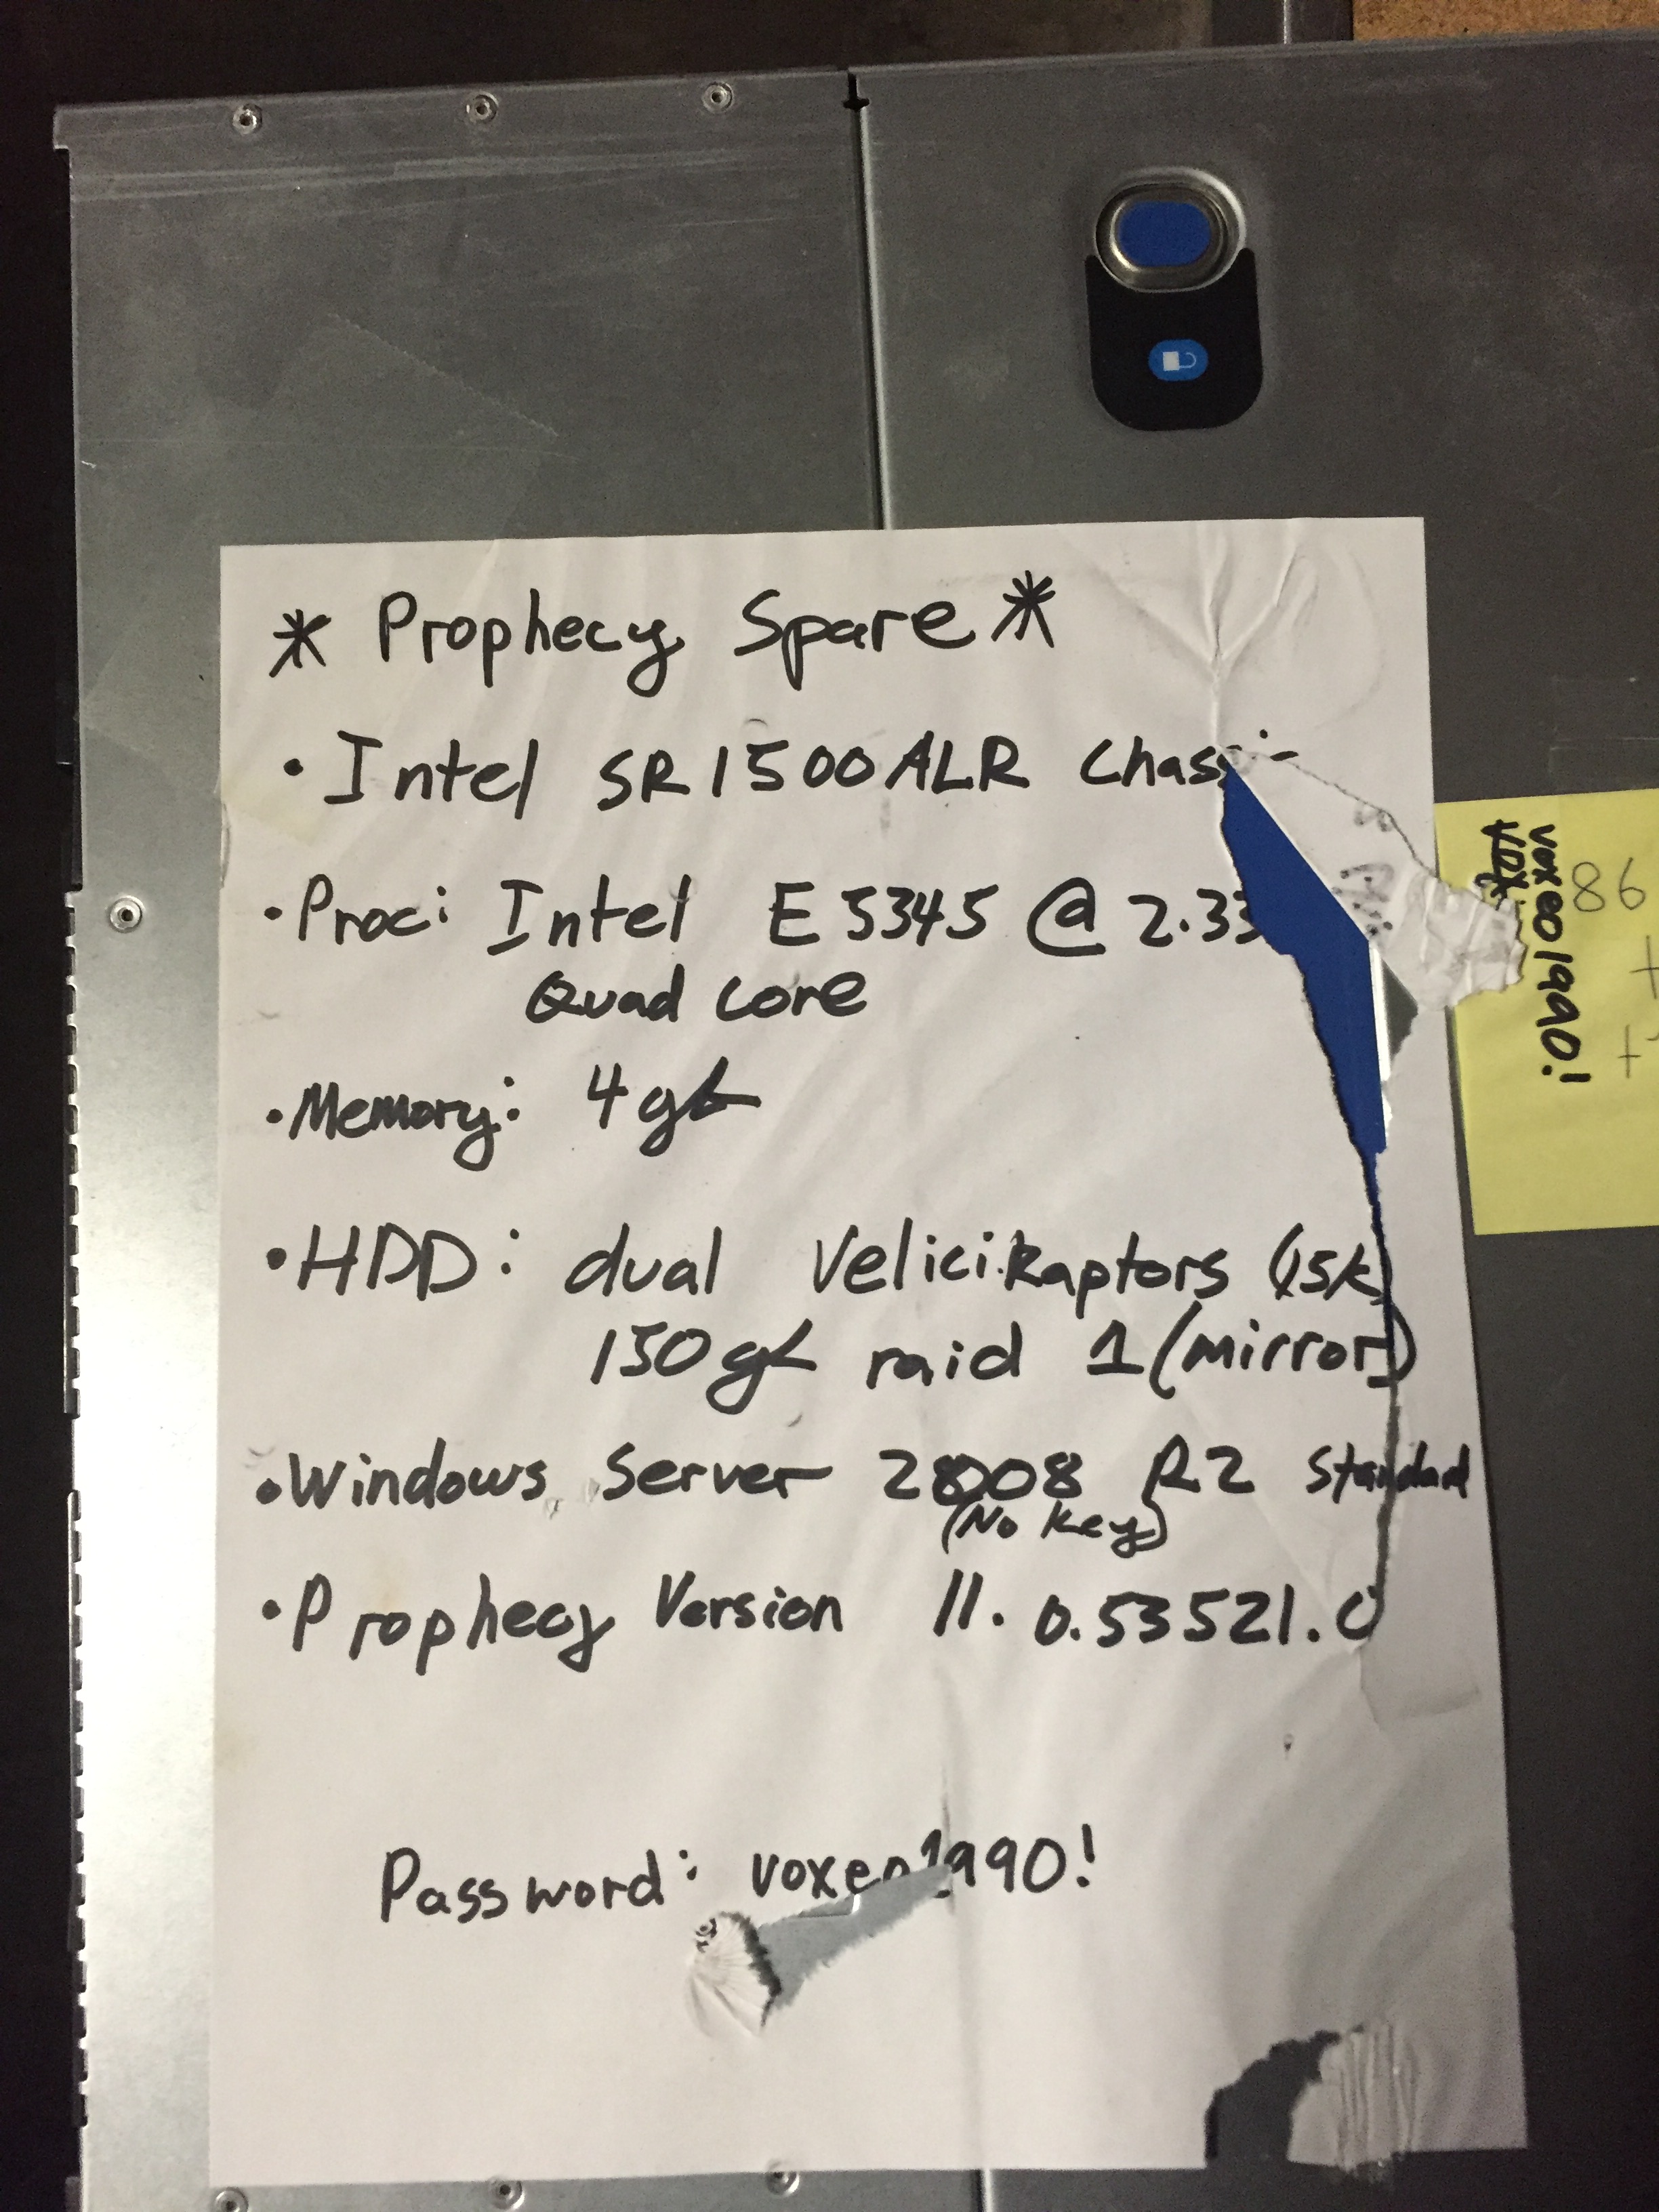 * Prophecy Spare *
• Intel SR1500ALR Chassi
• Proc: Intel E5345 @ 2.33
Quad core
• Memory: 4gb
• HDD: dual VeliciRaptors (15k)
150gb raid 1 (mirror)
• Windows Server 2008 R2 Standard
(No Key)
• Prophecy Version 11.0.53521.0
Password: voxeo1990!
voxeo1990!
86